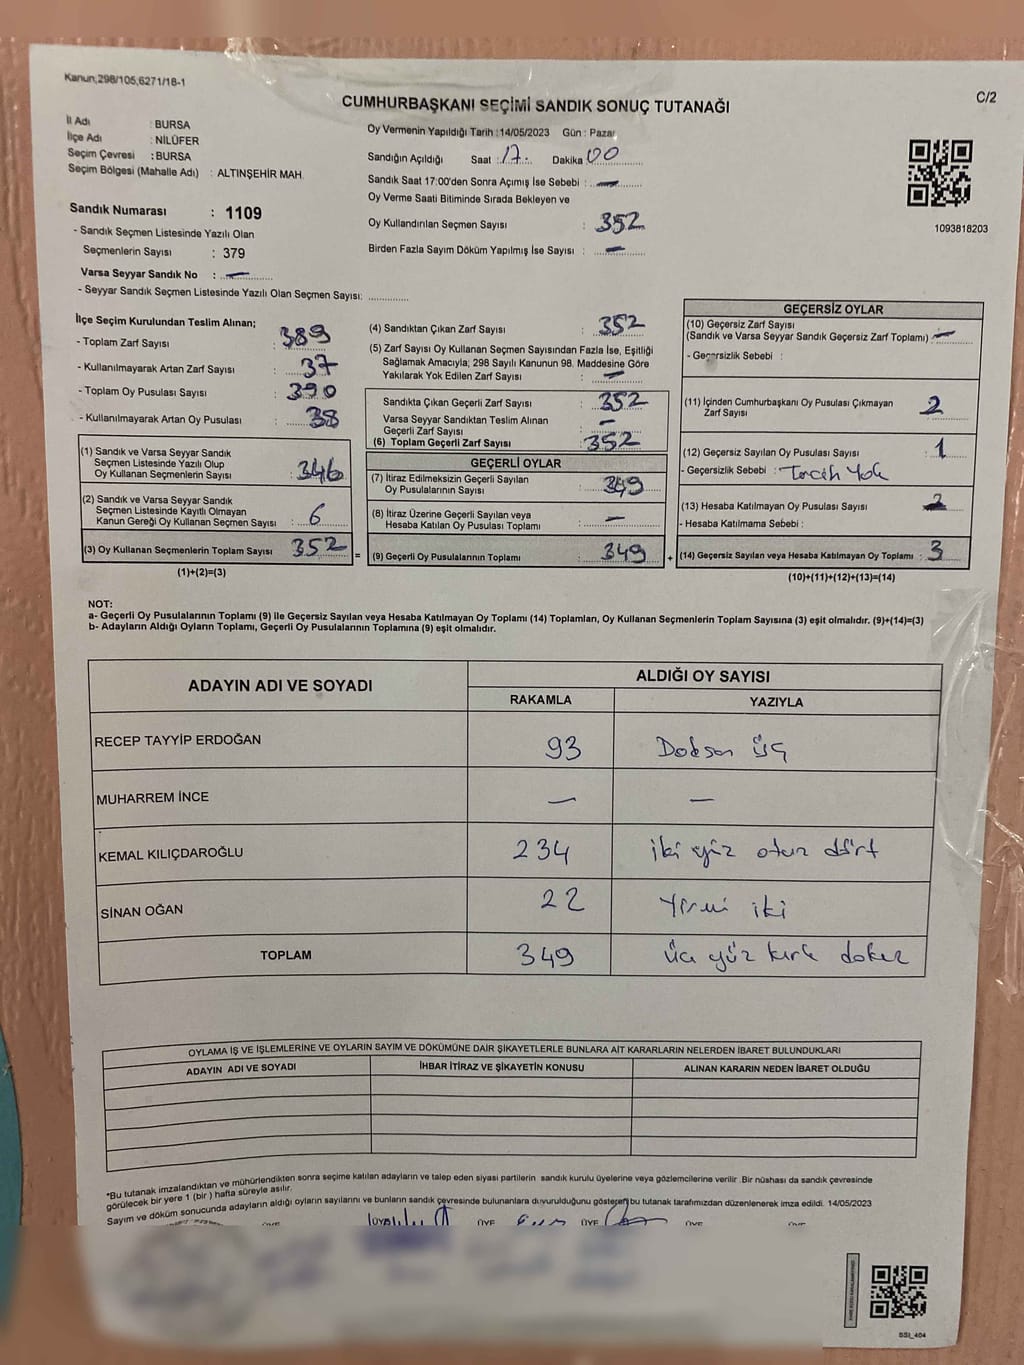 Kanun;298/105,6271/18-1
C/2
CUMHURBAŞKANI SEÇİMİ SANDIK SONUÇ TUTANAĞI
İl Adı : BURSA
İlçe Adı : NİLÜFER
Seçim Çevresi : BURSA
Seçim Bölgesi (Mahalle Adı) : ALTINŞEHİR MAH.
Sandık Numarası : 1109
- Sandık Seçmen Listesinde Yazılı Olan
Seçmenlerin Sayısı : 379
Varsa Seyyar Sandık No : —
- Seyyar Sandık Seçmen Listesinde Yazılı Olan Seçmen Sayısı: ............
Oy Vermenin Yapıldığı Tarih : 14/05/2023 Gün : Pazar
Sandığın Açıldığı Saat : 17 Dakika 00
Sandık Saat 17:00'den Sonra Açımış İse Sebebi : —
Oy Verme Saati Bitiminde Sırada Bekleyen ve
Oy Kullandırılan Seçmen Sayısı : 352
Birden Fazla Sayım Döküm Yapılmış İse Sayısı : —
1093818203
İlçe Seçim Kurulundan Teslim Alınan;
- Toplam Zarf Sayısı : 389
- Kullanılmayarak Artan Zarf Sayısı : 37
- Toplam Oy Pusulası Sayısı : 390
- Kullanılmayarak Artan Oy Pusulası : 38
(1) Sandık ve Varsa Seyyar Sandık
Seçmen Listesinde Yazılı Olup
Oy Kullanan Seçmenlerin Sayısı : 346
(2) Sandık ve Varsa Seyyar Sandık
Seçmen Listesinde Kayıtlı Olmayan
Kanun Gereği Oy Kullanan Seçmen Sayısı : 6
(3) Oy Kullanan Seçmenlerin Toplam Sayısı : 352 =
(1)+(2)=(3)
(4) Sandıktan Çıkan Zarf Sayısı : 352
(5) Zarf Sayısı Oy Kullanan Seçmen Sayısından Fazla İse, Eşitliği
Sağlamak Amacıyla; 298 Sayılı Kanunun 98. Maddesine Göre
Yakılarak Yok Edilen Zarf Sayısı : —
Sandıkta Çıkan Geçerli Zarf Sayısı : 352
Varsa Seyyar Sandıktan Teslim Alınan
Geçerli Zarf Sayısı : —
(6) Toplam Geçerli Zarf Sayısı : 352
GEÇERLİ OYLAR
(7) İtiraz Edilmeksizin Geçerli Sayılan
Oy Pusulalarının Sayısı : 349
(8) İtiraz Üzerine Geçerli Sayılan veya
Hesaba Katılan Oy Pusulası Toplamı : —
(9) Geçerli Oy Pusulalarının Toplamı : 349 +
GEÇERSİZ OYLAR
(10) Geçersiz Zarf Sayısı
(Sandık ve Varsa Seyyar Sandık Geçersiz Zarf Toplamı) : —
- Geçersizlik Sebebi :
(11) İçinden Cumhurbaşkanı Oy Pusulası Çıkmayan
Zarf Sayısı : 2
(12) Geçersiz Sayılan Oy Pusulası Sayısı : 1
- Geçersizlik Sebebi : Tercih Yok
(13) Hesaba Katılmayan Oy Pusulası Sayısı :
- Hesaba Katılmama Sebebi :
(14) Geçersiz Sayılan veya Hesaba Katılmayan Oy Toplamı : 3
(10)+(11)+(12)+(13)=(14)
NOT:
a- Geçerli Oy Pusulalarının Toplamı (9) ile Geçersiz Sayılan veya Hesaba Katılmayan Oy Toplamı (14) Toplamları, Oy Kullanan Seçmenlerin Toplam Sayısına (3) eşit olmalıdır. (9)+(14)=(3)
b- Adayların Aldığı Oyların Toplamı, Geçerli Oy Pusulalarının Toplamına (9) eşit olmalıdır.
ADAYIN ADI VE SOYADI ALDIĞI OY SAYISI
RAKAMLA YAZIYLA
RECEP TAYYİP ERDOĞAN 93 Doksan üç
MUHARREM İNCE — —
KEMAL KILIÇDAROĞLU 234 iki yüz otuz dört
SİNAN OĞAN 22 Yirmi iki
TOPLAM 349 üç yüz kırk dokuz
OYLAMA İŞ VE İŞLEMLERİNE VE OYLARIN SAYIM VE DÖKÜMÜNE DAİR ŞİKAYETLERLE BUNLARA AİT KARARLARIN NELERDEN İBARET BULUNDUKLARI
ADAYIN ADI VE SOYADI İHBAR İTİRAZ VE ŞİKAYETİN KONUSU ALINAN KARARIN NEDEN İBARET OLDUĞU
*Bu tutanak imzalandıktan ve mühürlendikten sonra seçime katılan adayların ve talep eden siyasi partilerin sandık kurulu üyelerine veya gözlemcilerine verilir .Bir nüshası da sandık çevresinde
görülecek bir yere 1 (bir ) hafta süreyle asılır.
Sayım ve döküm sonucunda adayların aldığı oyların sayılarını ve bunların sandık çevresinde bulunanlara duyurulduğunu gösteren bu tutanak tarafımızdan düzenlenerek imza edildi. 14/05/2023
BSI_404